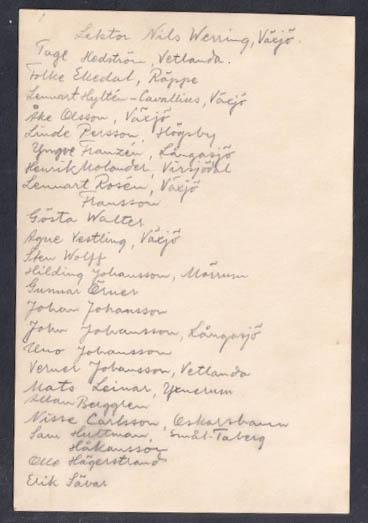 Lektor Nils Werring, Växjö.
Tage Hedström, Vetlanda.
Folke Ekedal, Räppe
Lennart Hyltén-Cavallius, Växjö
Åke Olsson, Växjö
Linde Persson, Högsby
Yngve Franzén, Långasjö
Henrik Molander, 
Lennart Rosén, Växjö
Fransson
Gösta Walter
Agne Vestling, Växjö
Sten Wolff
Hilding Johansson, Mörrum
Gunnar Örner
Johan Johansson
John Johansson, Långasjö
Uno Johansson
Verner Johansson, Vetlanda
Mats Leinar,
Allan Berggren
Nisse Carlsson, Oskarshamn
Sam Huttman, Smål.-Taberg
Håkansson
Olle Hägerstrand
Erik Sävar